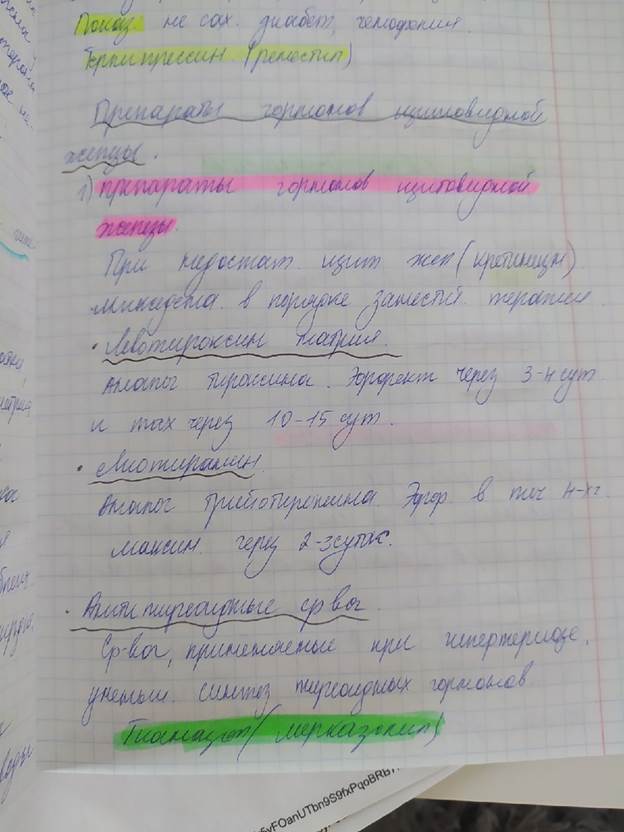 Показ. не сах. диабет, гемофилия.
Терлипрессин (реместип)
Препараты гормонов щитовидной
железы.
1) препараты гормонов щитовидной
железы.
При недостат. щит. жел (кретинизм)
микседема. в порядке заместит. терапии.
· Левотироксин натрия.
Аналог тироксина. Эффект через 3-4 сут
и max через 10-15 сут.
· Лиотиранин.
Аналог трийотиронина. Эфф. в теч 4-х ч.
максим. через 2-3суток.
· Антитиреоидные ср-ва.
Ср-ва, применяемые при гипертериозе.
уменьш. синтез тиреоидных гормонов
Тиамазол (мерказолил)
5yFOanUTbn9S9fxPqoBRbT